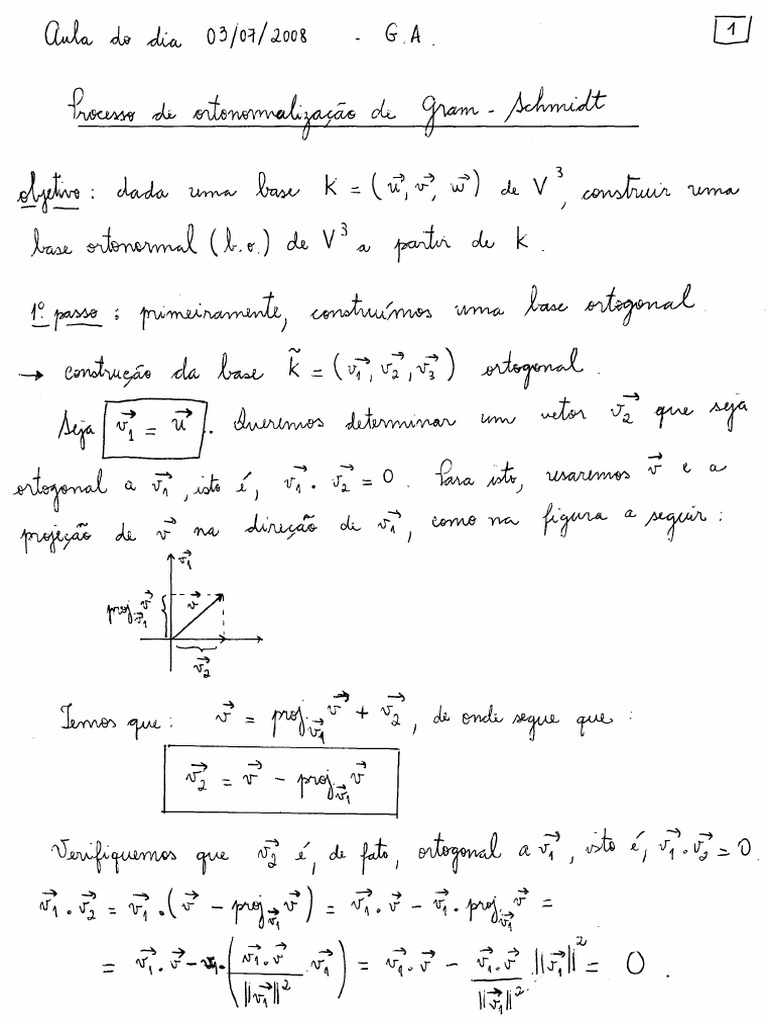 Aula do dia 03/07/2008 - G.A. 1
Processo de ortonormalização de Gram-Schmidt
objetivo: dada uma base K = (u⃗, v⃗, w⃗) de V³, construir uma
base ortonormal (b.o.) de V³ a partir de K.
1º passo: primeiramente, construímos uma base ortogonal.
→ construção da base K̃ = (v⃗₁, v⃗₂, v⃗₃) ortogonal.
Seja v⃗₁ = u⃗. Queremos determinar um vetor v⃗₂ que seja
ortogonal a v⃗₁, isto é, v⃗₁ · v⃗₂ = 0. Para isto, usaremos v⃗ e a
projeção de v⃗ na direção de v⃗₁, como na figura a seguir:
v⃗₁
proj_v⃗₁ v⃗
v⃗
v⃗₂
Temos que: v⃗ = proj_v⃗₁ v⃗ + v⃗₂, de onde segue que:
v⃗₂ = v⃗ - proj_v⃗₁ v⃗
Verifiquemos que v⃗₂ é, de fato, ortogonal a v⃗₁, isto é, v⃗₁ · v⃗₂ = 0.
v⃗₁ · v⃗₂ = v⃗₁ · (v⃗ - proj_v⃗₁ v⃗) = v⃗₁ · v⃗ - v⃗₁ · proj_v⃗₁ v⃗ =
= v⃗₁ · v⃗ - v⃗₁ · (v⃗₁ · v⃗ / ||v⃗₁||² · v⃗₁) = v⃗₁ · v⃗ - v⃗₁ · v⃗ / ||v⃗₁||² · ||v⃗₁||² = 0.